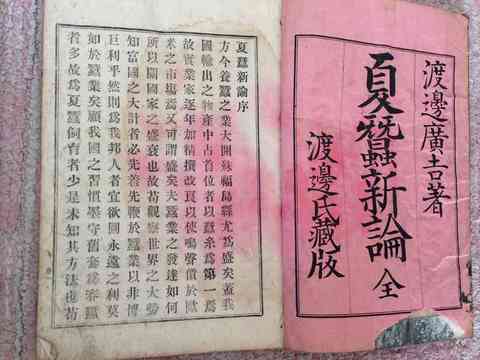 渡邊廣吉著
夏蠶新論 全
渡邊氏藏版
夏蠶新論序
方今養蠶之業大開福島縣尤爲盛矣蓋我
國輸出之物產中占首位者以蠶糸爲第一爲
故實業家逐年加精撰改良以使鳴聲價於歐
米之市塲焉又可謂盛矣夫蠶業之發達如何
所以關國家之盛衰也故苟觀察世界之大勢
知富國之大計者必先着先鞭於蠶業以非博
巨利乎然則爲我邦人者宜欲圖永遠之利莫
如於蠶業矣顧我國之習慣墨守舊套爲春蠶
者多故爲夏蠶飼育者少是未知其方法也苟